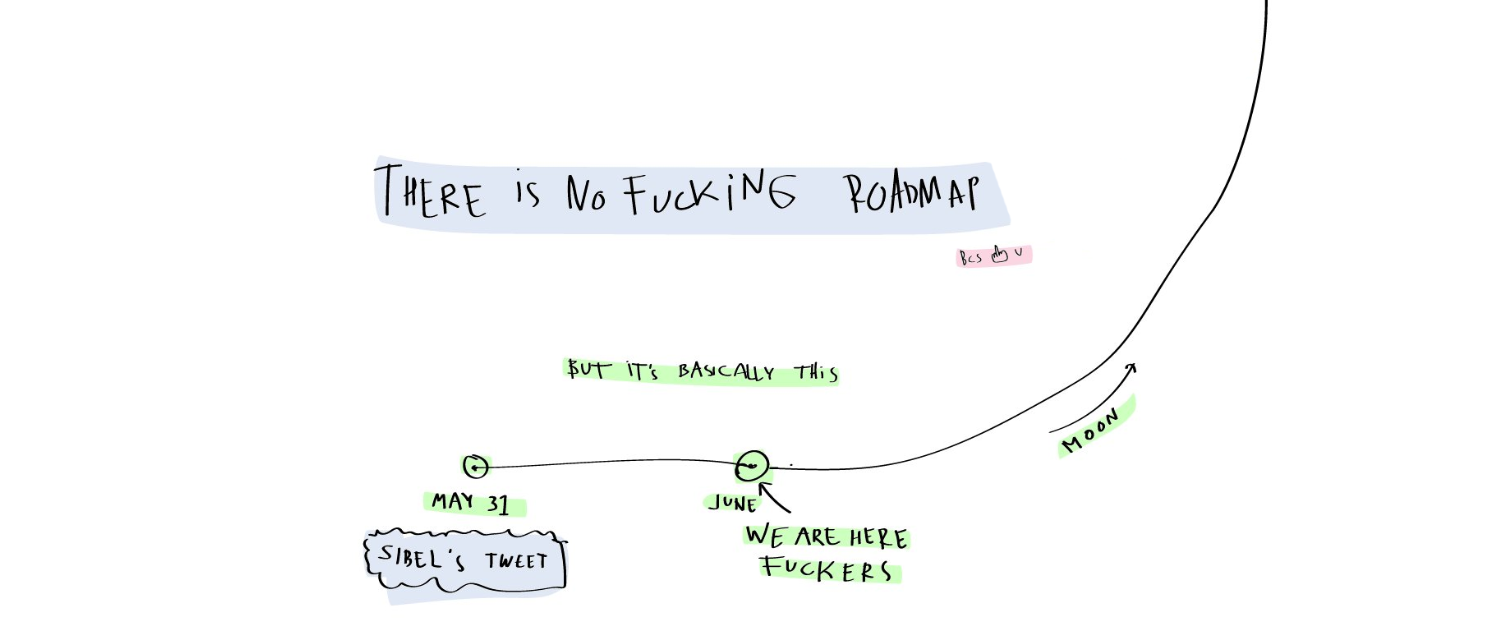 THERE iS NO FUCKiNG ROADMAP
BCS U
BUT iT'S BASICALLY THiS
MOON
MAY 31
JUNE
SIBEL'S TWEET
WE ARE HERE
FUCKERS